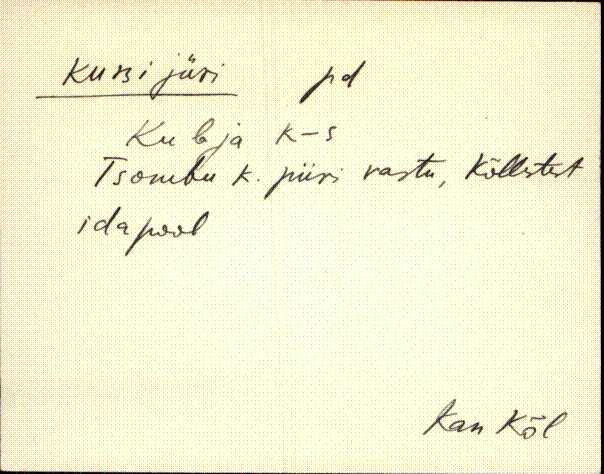 Kursi jüri pd
Kubja k-s
Tsombu k. piiri vastu, Kõllestest
idapool
Kan Kõl